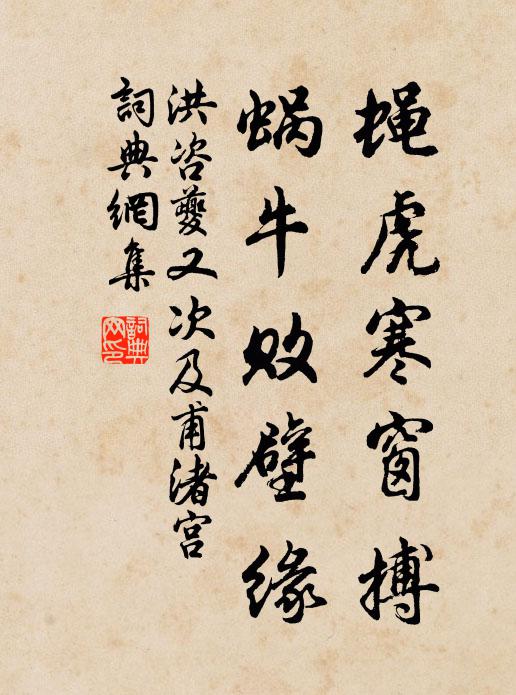 蝇虎寒窗搏
蜗牛败壁缘
洪咨夔又次及甫渚宫
詞典網集
詞典网印